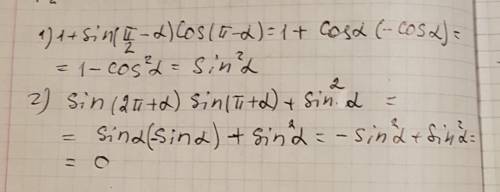 1) 1 + sin(π/2 - α) cos(π - α) = 1 + cosα (-cosα) =
= 1 - cos²α = sin²α
2) sin(2π + α) sin(π + α) + sin²α =
= sinα(-sinα) + sin²α = -sin²α + sin²α =
= 0